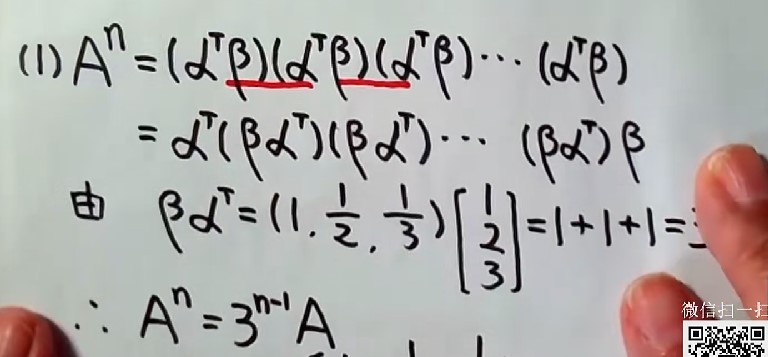 (1) Aⁿ = (αᵀβ)(αᵀβ)(αᵀβ)⋯(αᵀβ)
= αᵀ(βαᵀ)(βαᵀ)⋯ (βαᵀ)β
由 βαᵀ = (1, 1/2, 1/3) [1 2 3] = 1+1+1 =
∴ Aⁿ = 3ⁿ⁻¹A
微信扫一扫